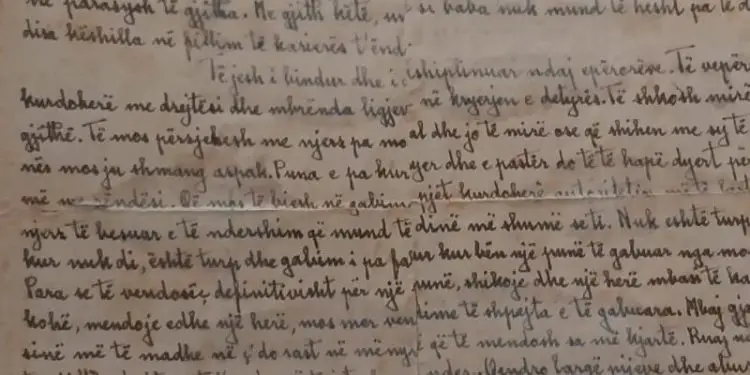 me parasysh të gjitha. Me gjith këtë, un si baba nuk mund të hesht pa të d
disa këshilla në fillim të karierës t'ënd
Të jesh i bindur dhe i ishiplinuar ndaj epërorëve. Të vepër
kurdoherë me drejtësi dhe mbrënda ligjev në kryerjen e detyrës. Të shkosh mirë
gjithë. Të mos përsjekesh me njerz pa mo al dhe jo të mirë ose që shihen me sy të
nës mos ju shmang aspak. Puna e pa kur yer dhe e pastër do të të hapë dyert për
më rëndësi. Që mos të biesh në gabim pjët kurdoherë
njerz të besuar e të ndershëm që mund të dinë më shumë se ti. Nuk është turp
kur nuk di, është turp dhe gabim i pa fa ur kur bën një punë të gabuar nga mo
Para se të vendosiç definitivisht për një punë, shikoje dhe një herë mbasi të ka
kohë, mendoje edhe një herë, mos mer ven time të shpejta e të gabuara. Mbaj gja
sinë më të madhe në ç'do rast në mënyr që të mendosh sa më kjartë. Ruaj ne
Qendro largë njeve dhe abu